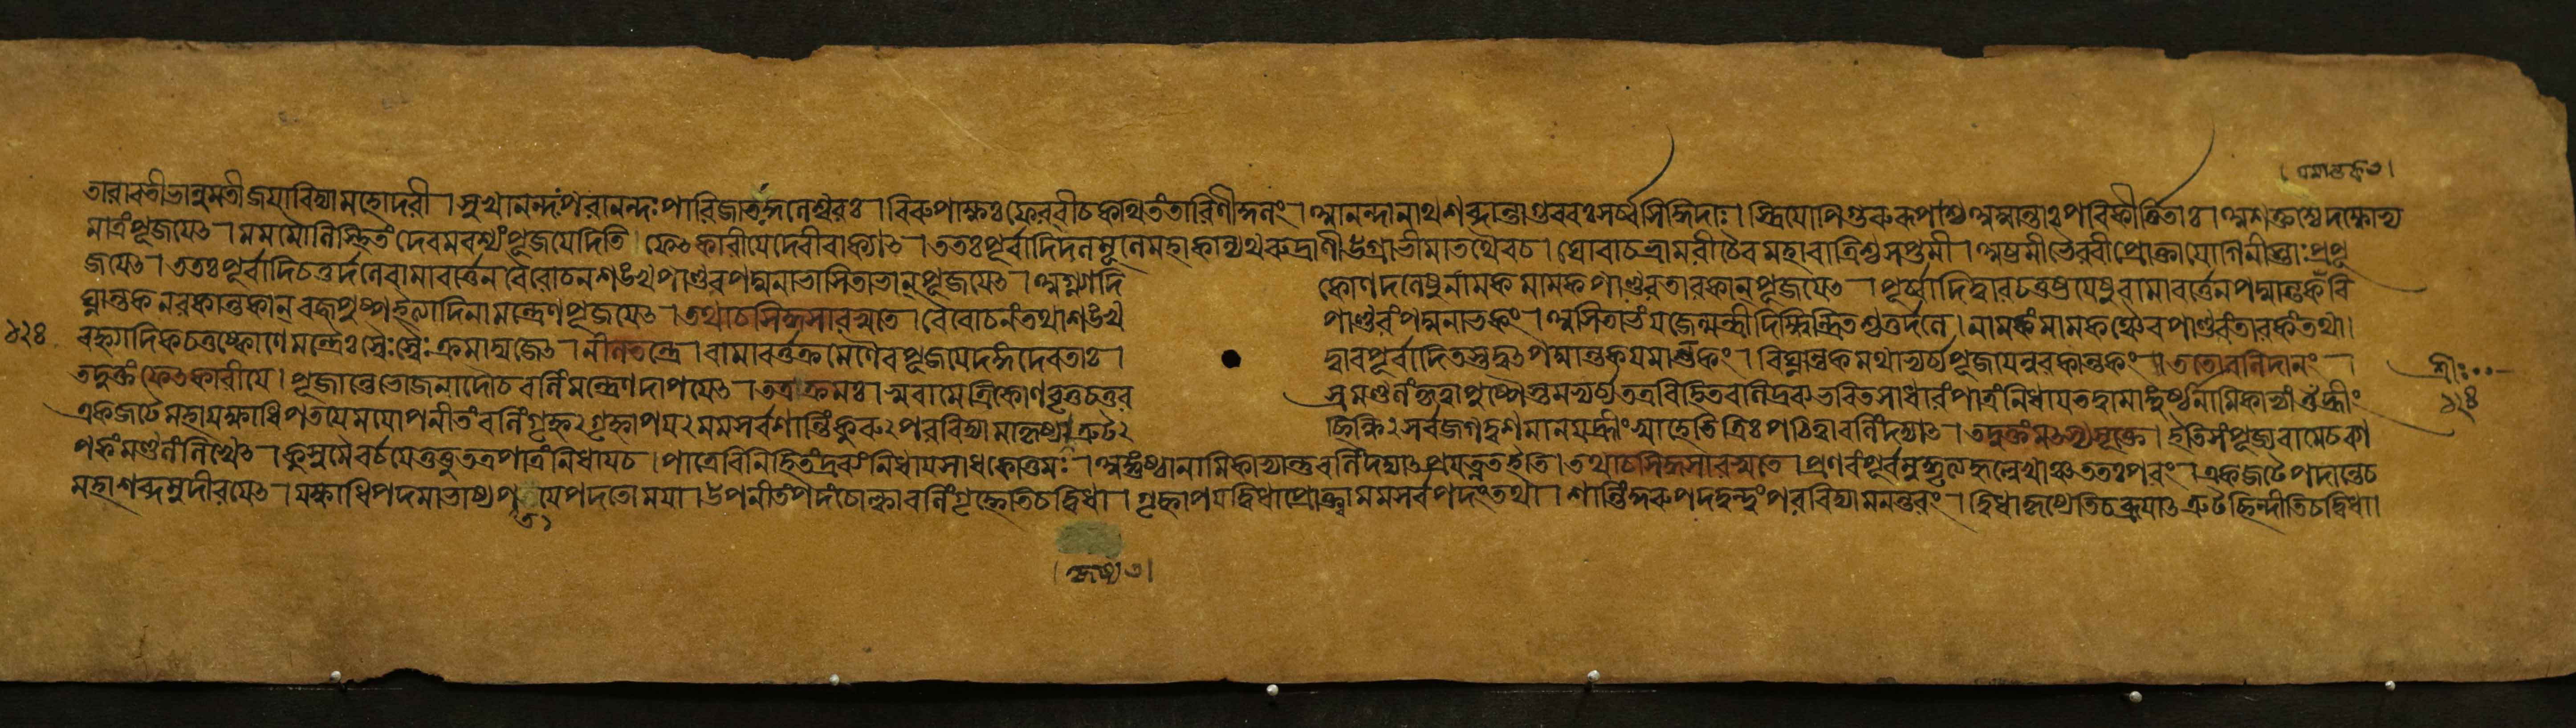 তারাবতীভানুমতীজয়াবিদ্যামহোদরী । সুখানন্দঃপরানন্দঃপারিজাতঃ কুলেশ্বরঃ । বিরূপাক্ষঃফেরবীচকথিতংতারিণীকুলং । আনন্দনাথশব্দান্তাগুরবঃসর্ব্বসিদ্ধিদাঃ । স্ত্রিয়োপিগুরুরূপাশ্চঅম্বান্তাঃপরিকীর্ত্তিতাঃ । অশক্তশ্চেদক্ষোভ্য
মাত্রংপূজয়েৎ । মমমৌলিস্থিতংদেবমবশ্যংপূজয়েদিতি ফেৎকারীয়েদেবীবাক্যাৎ । ততঃপূর্ব্বাদিদলমূলেমহাকাল্যথরুদ্রাণীউগ্রাভীমাতথৈবচ । ঘোরাচভ্রামরীচৈবমহারাত্রিশ্চসপ্তমী । অষ্টমীভৈরবীপ্রোক্তাযোগিনীস্তাঃপ্রপূ
জয়েৎ । ততঃপূর্ব্বাদিচতুর্দলেবামাবর্ত্তেনবৈরোচনশঙ্খপাণ্ডরপদ্মনাভাসিতাভান্পূজয়েৎ । অগ্ন্যাদি কোণদলেষুনামকমামকপাণ্ডরতারকান্পূজয়েৎ । পূর্ব্বাদিদ্বারচতুষ্টয়েষুবামাবর্ত্তেনপদ্মান্তকবি
ঘ্নান্তকনরকান্তকান্বজ্রপুষ্পইত্যাদিনামন্ত্রেণপূজয়েৎ । তথাচসিদ্ধসারস্বতে । বৈরোচনংতথাশঙ্খ পাণ্ডরংপদ্মনাভকং । অসিতাভংযজেন্মন্ত্রী । নামকংমামকঞ্চৈবপাণ্ডরংতারকংতথা ।
বহ্ন্যাদিকচতুষ্কোণেমন্ত্রৈঃস্বৈঃস্বৈঃক্রমাদ্যজেৎ । নীলতন্ত্রে । বামাবর্ত্তক্রমেণৈবপূজয়েদঙ্গদেবতাঃ । দ্বারপূর্ব্বাদিতস্তদ্বৎপদ্মান্তকযমান্তকং । বিঘ্নান্তকমথাভ্যর্চ্চ্যপূজয়েন্নরকান্তকং ॥ ততোবলিদানং ।
তদুক্তংফেৎকারীয়ে । পূজান্তেভোজনাদৌচবলিংমন্ত্রেণদাপয়েৎ । তত্রক্রমঃ । স্ববামেত্রিকোণবৃত্তচতুর স্রমণ্ডলংকৃত্বাপুষ্পৈস্তমভ্যর্চ্চ্যতত্রবিহিতবলিদ্রব্যভরিতসাধারংপাত্রংনিধায়
একজটেমহাযক্ষাধিপতয়েময়োপনীতংবলিংগৃহ্ণ২গৃহ্ণাপয়২মমসর্ব্বশান্তিংকুরু২পরবিদ্যামাকৃষ্য২ত্রুট২ ছিন্ধি২সর্ব্বজগদ্বশমানয়হ্রীংস্বাহেতিত্রিঃপঠিত্বাবলিংদদ্যাৎ । তদুক্তংমৎস্যসূক্তে । ইতিসংপূজ্যবামেচরূ
পকংমণ্ডলংলিখেৎ । কুসুমৈরর্চ্চয়েত্তত্তুতত্রপাত্রংনিধায়চ । পাত্রেবিনিহিতংদ্রব্যংনিধায়সাধকোত্তমঃ । বলিংদদ্যাৎপ্রযত্নতইতি । তথাচসিদ্ধসারস্বতে । প্রণবংপূর্ব্বমুদ্ধৃত্যহৃল্লেখাঞ্চততঃপরং । একজটেপদান্তেচ
মহাশব্দমুদীরয়েৎ । যক্ষাধিপদমাভাষ্যপতয়েপদতোময়া । উপনীতংপদংচোক্ত্বাবলিংগৃহ্ণেতিচদ্বিধা । গৃহ্ণাপয়দ্বিধাপ্রোক্ত্বামমসর্ব্বপদংতথা । শান্তিংকুরুপদদ্বন্দ্বংপরবিদ্যামনন্তরং । দ্বিধাকৃষ্যেতিচব্রূয়াৎত্রুটছিন্দীতিচদ্বিধা ।
১২৪
শ্রীঃ
১২৪